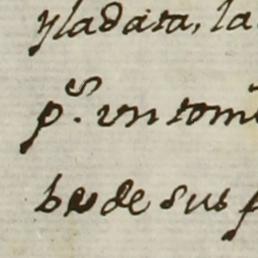 y la data, la
ps. un tom
bre de sus